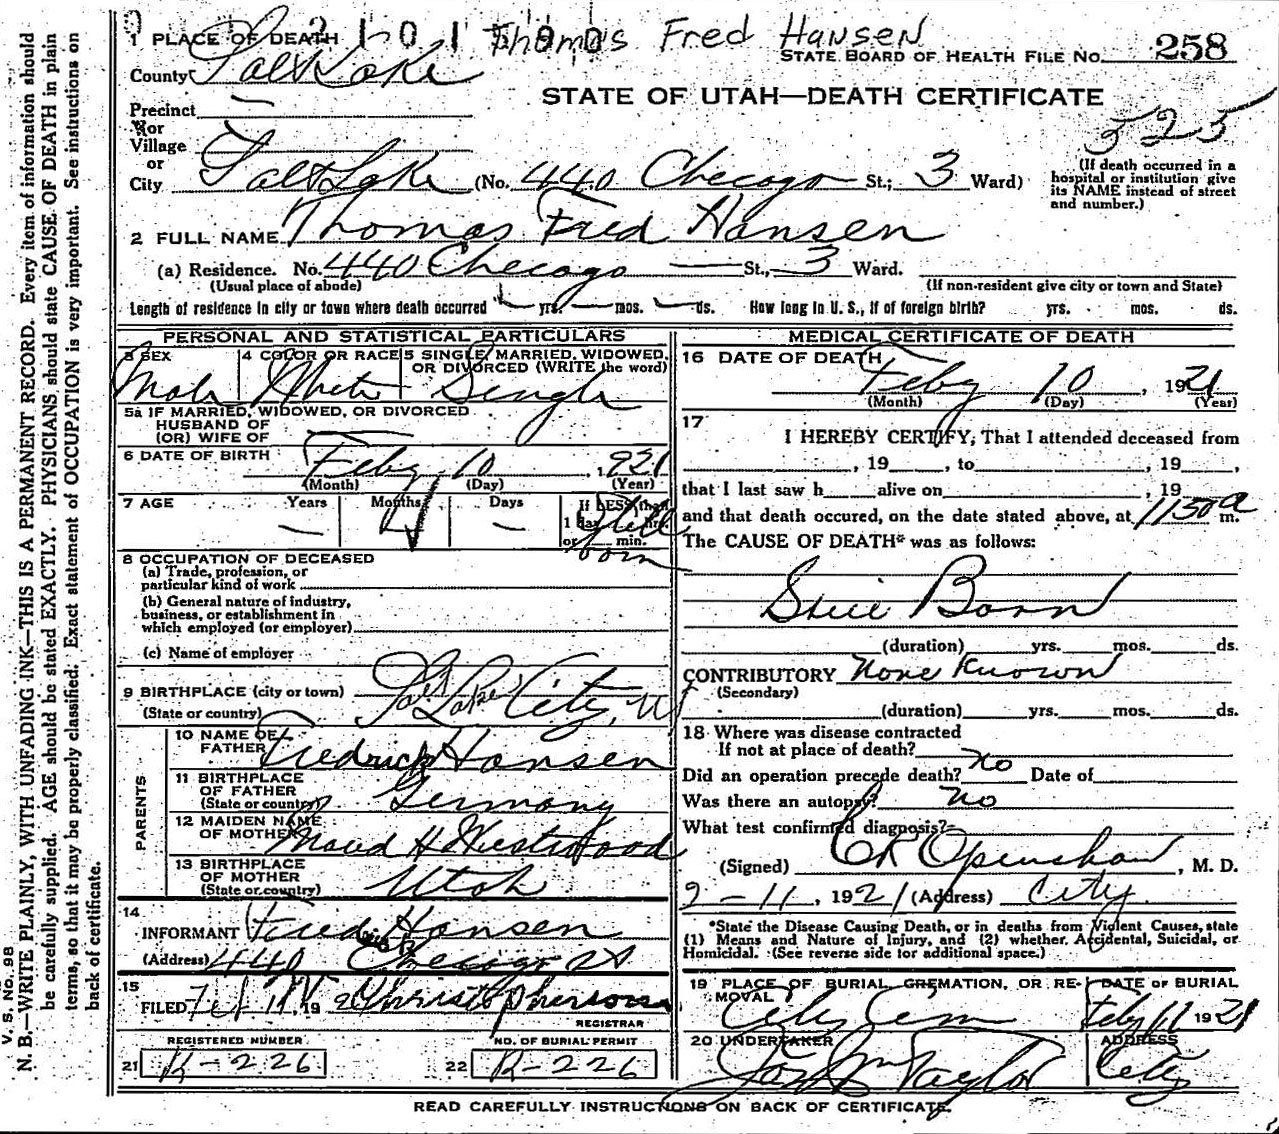 2101580 Thomas Fred Hansen
1 PLACE OF DEATH
STATE BOARD OF HEALTH FILE No. 258
County Salt Lake
STATE OF UTAH—DEATH CERTIFICATE
Precinct —
525
or
Village
or
(If death occurred in a hospital or institution give its NAME instead of street and number.)
City Salt Lake (No. 440 Checago St.; 3 Ward)
2 FULL NAME Thomas Fred Hansen
(a) Residence. No. 440 Checago — St., 3 Ward.
(Usual place of abode) (If non-resident give city or town and State)
Length of residence in city or town where death occurred — yrs. — mos. — ds. How long in U. S., if of foreign birth? yrs. mos. ds.
PERSONAL AND STATISTICAL PARTICULARS
3 SEX 4 COLOR OR RACE 5 SINGLE, MARRIED, WIDOWED, OR DIVORCED (WRITE the word)
Male White Single
5a IF MARRIED, WIDOWED, OR DIVORCED
HUSBAND OF
(OR) WIFE OF
6 DATE OF BIRTH Feby 10, 1921
(Month) (Day) (Year)
7 AGE Years Months Days If LESS than
1 day hrs.
or min.
— — Still born
8 OCCUPATION OF DECEASED
(a) Trade, profession, or
particular kind of work
(b) General nature of industry,
business, or establishment in
which employed (or employer)
(c) Name of employer
9 BIRTHPLACE (city or town) Salt Lake City, Ut
(State or country)
PARENTS
10 NAME OF
FATHER Fredrick Hansen
11 BIRTHPLACE
OF FATHER
(State or country) Germany
12 MAIDEN NAME
OF MOTHER Maud H Westwood
13 BIRTHPLACE
OF MOTHER
(State or country) Utah
14
INFORMANT Fred Hansen
(Address) 440 Checago St
15
FILED 19
REGISTRAR
REGISTERED NUMBER NO. OF BURIAL PERMIT
21 R-226 22 R-226
MEDICAL CERTIFICATE OF DEATH
16 DATE OF DEATH
Feby 10, 1921
(Month) (Day) (Year)
17
I HEREBY CERTIFY, That I attended deceased from
, 19 , to , 19 ,
that I last saw h alive on , 19
and that death occured, on the date stated above, at 1150 a m.
The CAUSE OF DEATH* was as follows:
Still Born
(duration) yrs. mos. ds.
CONTRIBUTORY None Known
(Secondary)
(duration) yrs. mos. ds.
18 Where was disease contracted
If not at place of death?
Did an operation precede death? no Date of
Was there an autopsy? no
What test confirmed diagnosis?
(Signed) Openshaw, M. D.
2-11, 1921 (Address) City
*State the Disease Causing Death, or in deaths from Violent Causes, state
(1) Means and Nature of Injury, and (2) whether Accidental, Suicidal, or
Homicidal. (See reverse side for additional space.)
19 PLACE OF BURIAL CREMATION, OR RE- DATE OF BURIAL
MOVAL
City Cem Feby 11 1921
20 UNDERTAKER ADDRESS
Taylor City
READ CAREFULLY INSTRUCTIONS ON BACK OF CERTIFICATE.
V. S. No. 98
N. B.—WRITE PLAINLY, WITH UNFADING INK—THIS IS A PERMANENT RECORD. Every item of information should
be carefully supplied. AGE should be stated EXACTLY. PHYSICIANS should state CAUSE OF DEATH in plain
terms, so that it may be properly classified. Exact statement of OCCUPATION is very important. See instructions on
back of certificate.